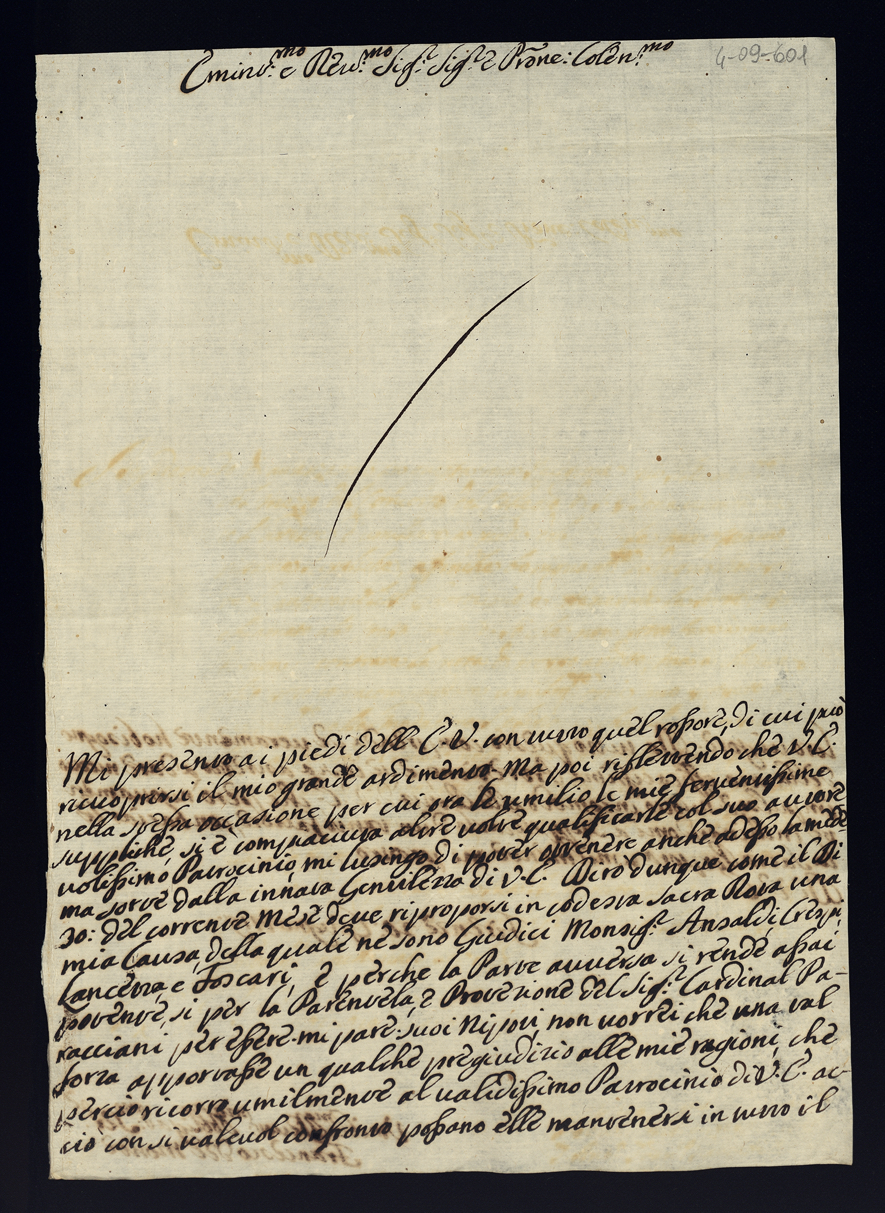 4-09-601
Emin:mo e Reu:mo Sig:r Sig:r e Prone: Colen:mo
Mi presento a i piedi dell' E.V. con tutto quel rossore, di cui può
ricuoprirsi il mio grande ardimento. Ma poi riflettendo, che V.E.
nella stessa occasione per cui ora le umilio le mie feruentissime
suppliche, si è compiaciuta altre uolte qualificarle col suo autore
uolissimo Patrocinio, mi lusingo di poter ottenere anche adesso la mede
ma sorte dalla innata Gentilezza di V.E. Dirò dunque come il Di
30: del corrente Mese deue riproporsi in codesta Sacra Rota una
mia Causa, della quale ne sono Giudici Monsig:r Ansaldi, Crespi,
Lancetta, e Foscari, e perche la Parte auuersa si rende assai
potente, si per la Parentela, e Protezione del Sig:r Cardinal Pa-
racciani, per essere mi pare suoi Nipoti, non uorrei che una tal
forza apportasse un qualche pregiudizio alle mie ragioni, che
perciò ricorro umilmente al ualidissimo Patrocinio di V.E. ac-
ciò con si ualeuol confronto possano elle mantenersi in tutto il